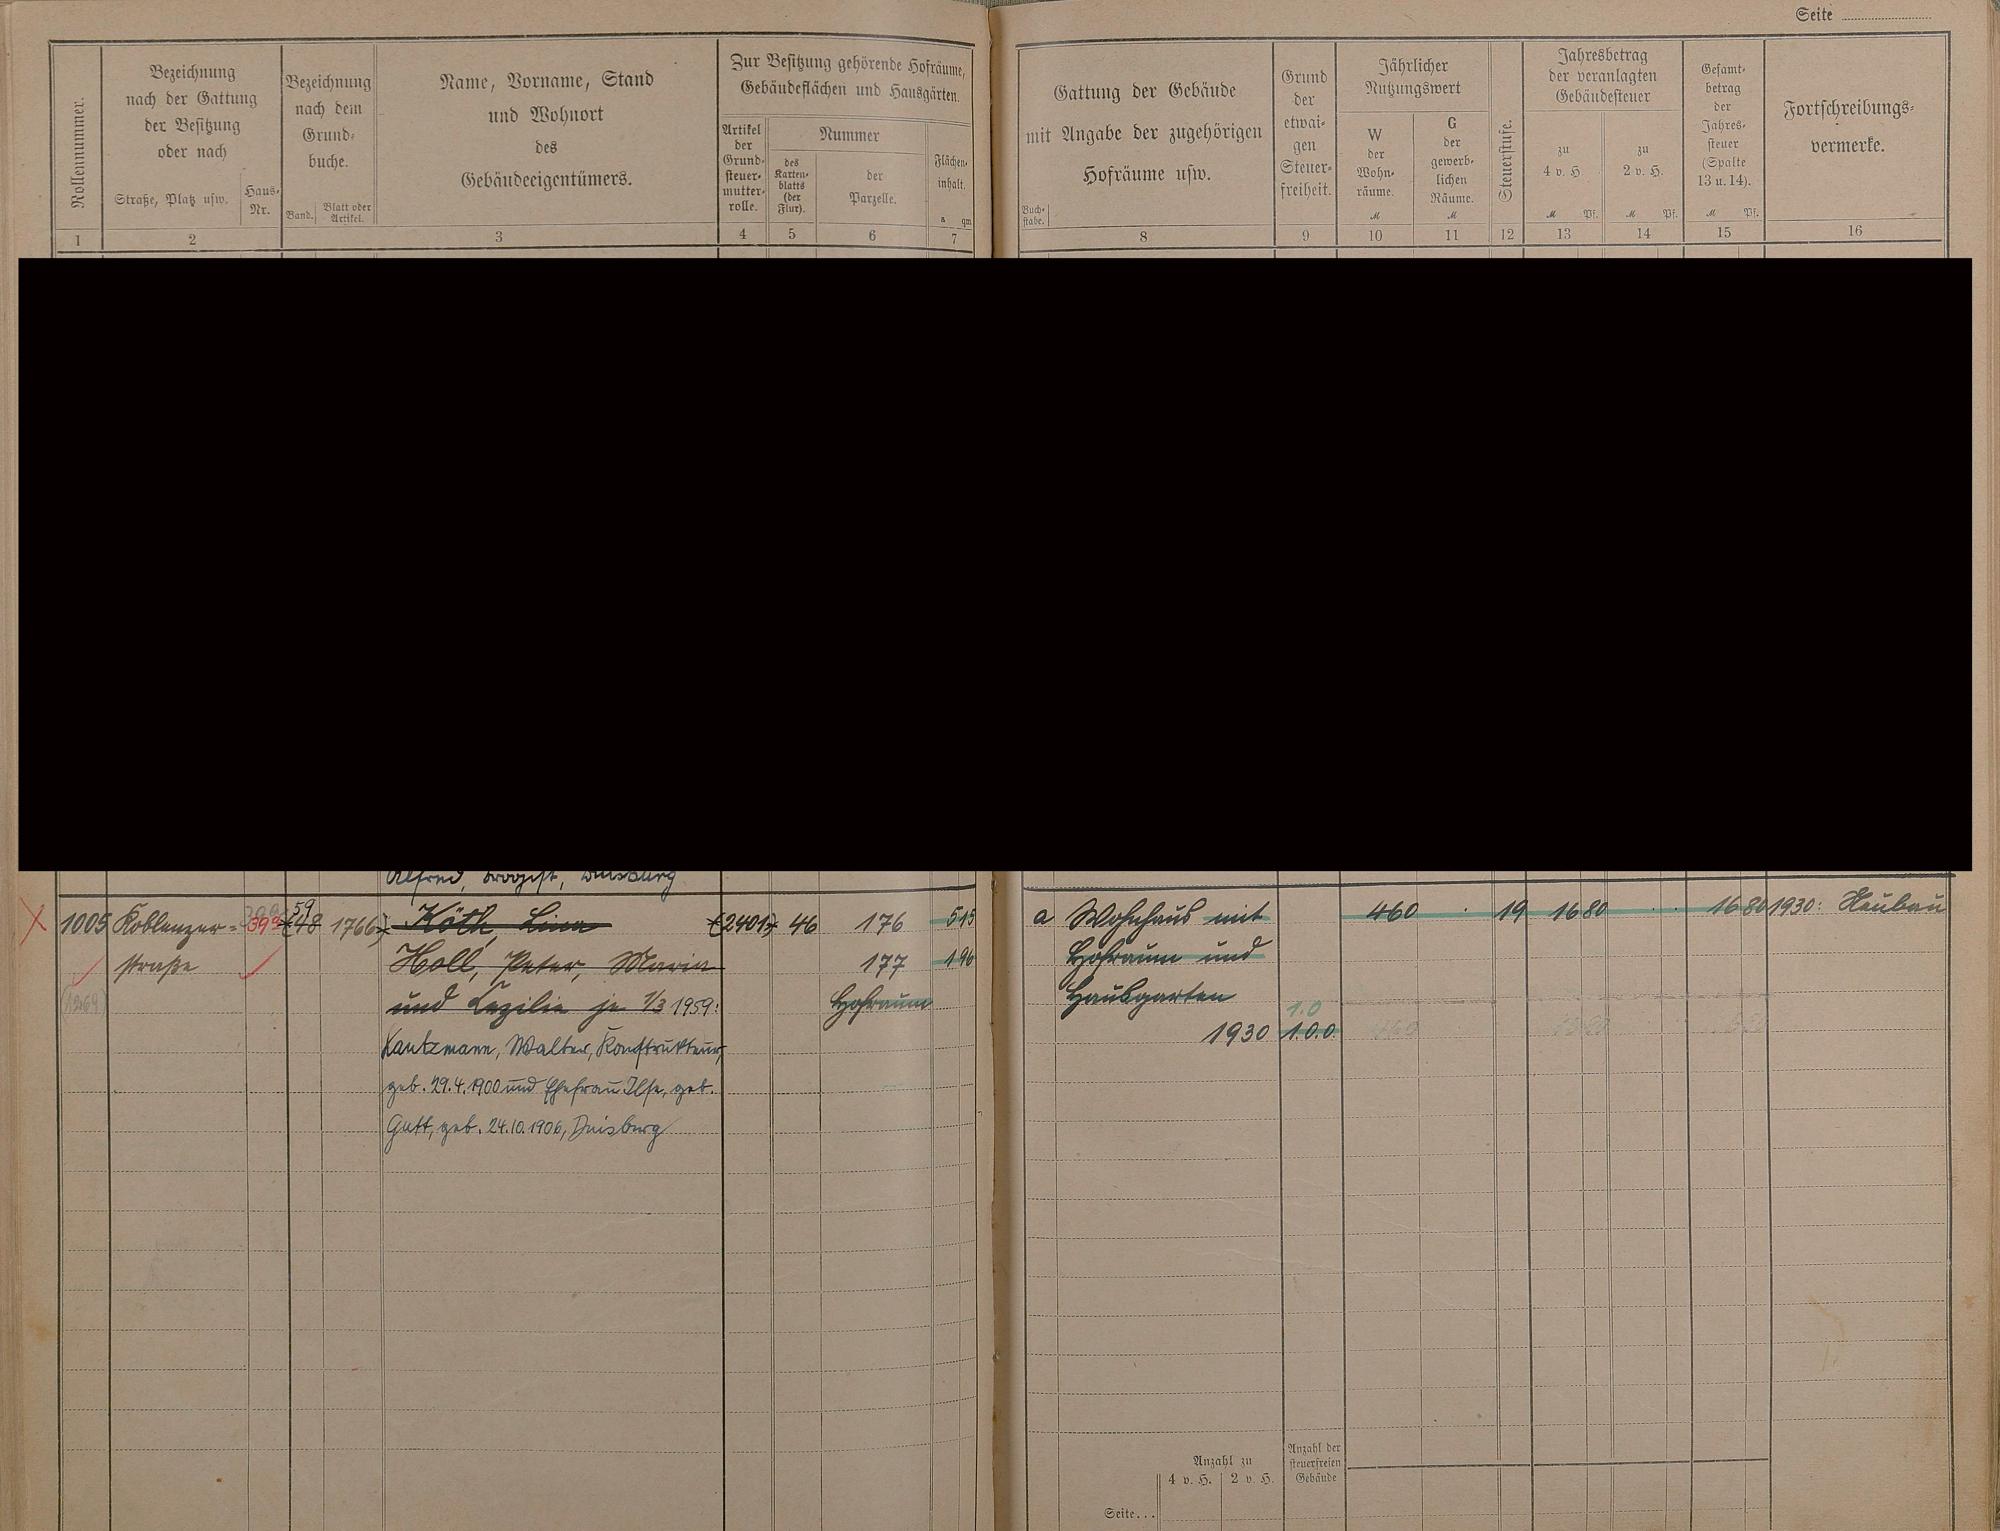 Seite
Rollennummer.
Bezeichnung
nach der Gattung
der Besitzung
oder nach
Straße, Platz usw.
Haus-
Nr.
Bezeichnung
nach dem
Grund-
buche.
Band.
Blatt oder
Artikel.
Name, Vorname, Stand
und Wohnort
des
Gebäudeeigentümers.
Zur Besitzung gehörende Hofräume,
Gebäudeflächen und Hausgärten.
Artikel
der
Grund-
steuer-
mutter-
rolle.
Nummer
des
Karten-
blatts
(der
Flur).
der
Parzelle.
Flächen-
inhalt.
a qm
Gattung der Gebäude
mit Angabe der zugehörigen
Hofräume usw.
Buch-
stabe.
Grund
der
etwai-
gen
Steuer-
freiheit.
Jährlicher
Nutzungswert
W
der
Wohn-
räume.
M
G
der
gewerb-
lichen
Räume.
M
Steuerstufe.
Jahresbetrag
der veranlagten
Gebäudesteuer
zu
4 v. H.
M Pf.
zu
2 v. H.
M Pf.
Gesamt-
betrag
der
Jahres-
steuer
(Spalte
13 u. 14).
M Pf.
Fortschreibungs-
vermerke.
1 2 3 4 5 6 7 8 9 10 11 12 13 14 15 16
Alfred, Drogist, Duisburg
1005 Koblenzer- 39a 59 (48 1766) Köth, Lina (2401) 46 176 515 a Wohnhaus mit 460 19 16 80 16 80 1930: Neubau
straße Holl, Peter, Maria 177 196 Hofraum und
und Cezilie je 1/3 1959: Hofraum Hausgarten
1930 1.0.0. 1.0
Kantzmann, Walter, Konstrukteur,
geb. 29.4.1900 und Ehefrau Ilse, geb.
Gutt, geb. 24.10.1906, Duisburg
Anzahl zu
4 v. H. 2 v. H.
Anzahl der
steuerfreien
Gebäude
Seite...